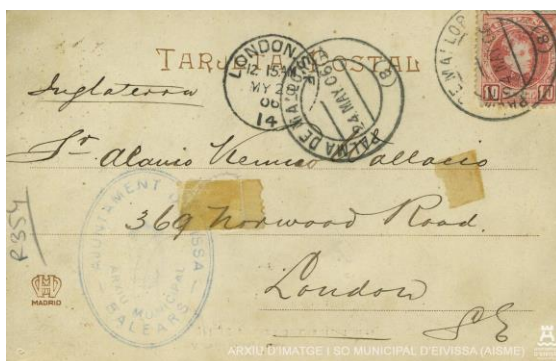 TARJETA POSTAL
LONDON.S.E
12.15AM
MY 2
06
14
PALMA DE MALLORCA
24 MAY 06
(8)
PALMA DE MALLORCA
(8)
10 10
Inglaterra
Sr Alanio
369 Norwood Road.
London
S.E
R354
AJUNTAMENT D'EIVISSA
ARXIU MUNICIPAL
BALEARS
MADRID
ARXIU D'IMATGE I SO MUNICIPAL D'EIVISSA (AISME)